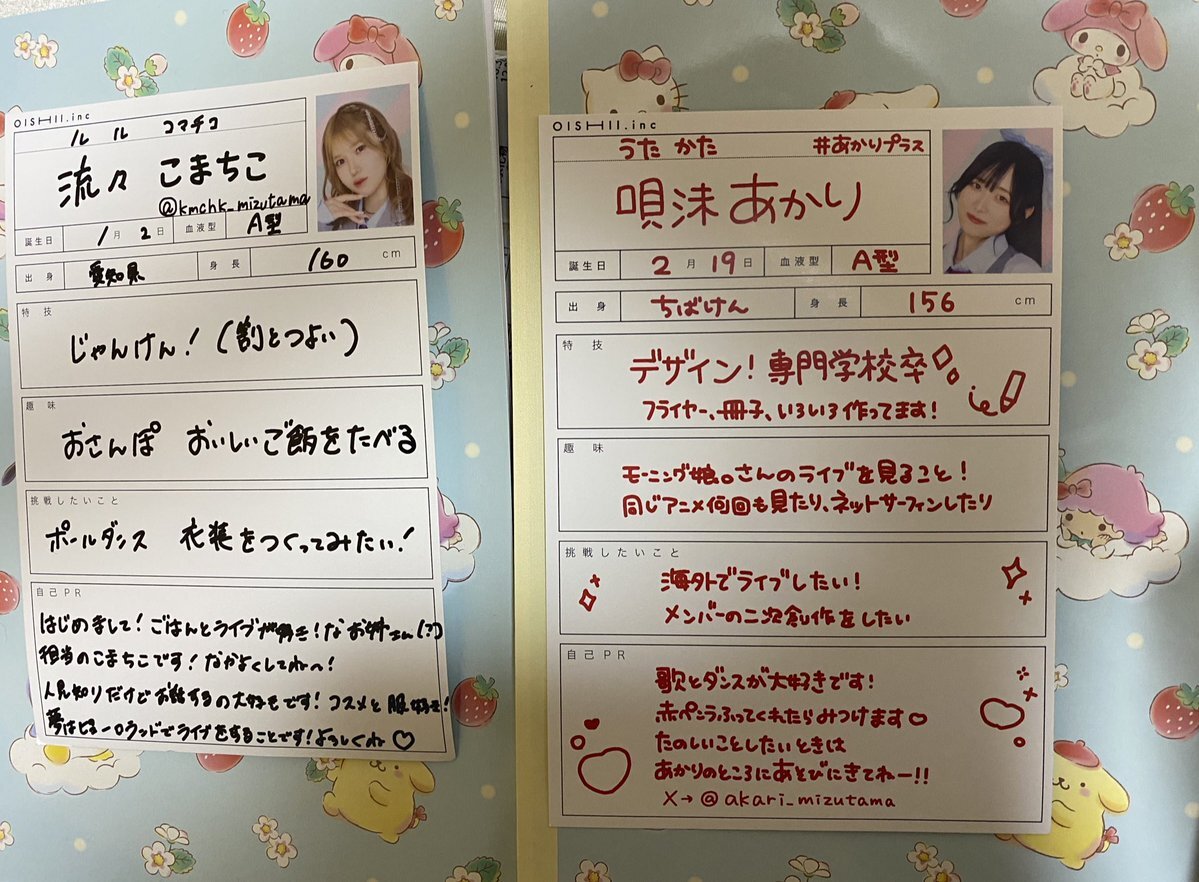 OISHII.inc
ルル コマチコ
流々 こまちこ
@kmchk_mizutama
誕生日 1月2日 血液型 A型
出身 愛知県 身長 160 cm
特技
じゃんけん！（割とつよい）
趣味
おさんぽ おいしいご飯をたべる
挑戦したいこと
ポールダンス 衣装をつくってみたい！
自己PR
はじめまして！ごはんとライブが好き！なお姉さん(?)
担当のこまちこです！なかよくしてねへ！
人見知りだけどお話するの大好きです！コスメと服好き！
夢はヒューリックホールでライブをすることです！よろしくね♡
OISHII.inc
うた かた #あかりプラス
唄沫あかり
誕生日 2月19日 血液型 A型
出身 ちばけん 身長 156 cm
特技
デザイン！専門学校卒
フライヤー、冊子、いろいろ作ってます！
趣味
モーニング娘。さんのライブを見ること！
同じアニメ何回も見たり、ネットサーフィンしたり
挑戦したいこと
海外でライブしたい！
メンバーの二次創作をしたい
自己PR
歌とダンスが大好きです！
赤ペンラふってくれたらみつけます♡
たのしいことしたいときは
あかりのところにあそびにきてねー!!
X→@akari_mizutama